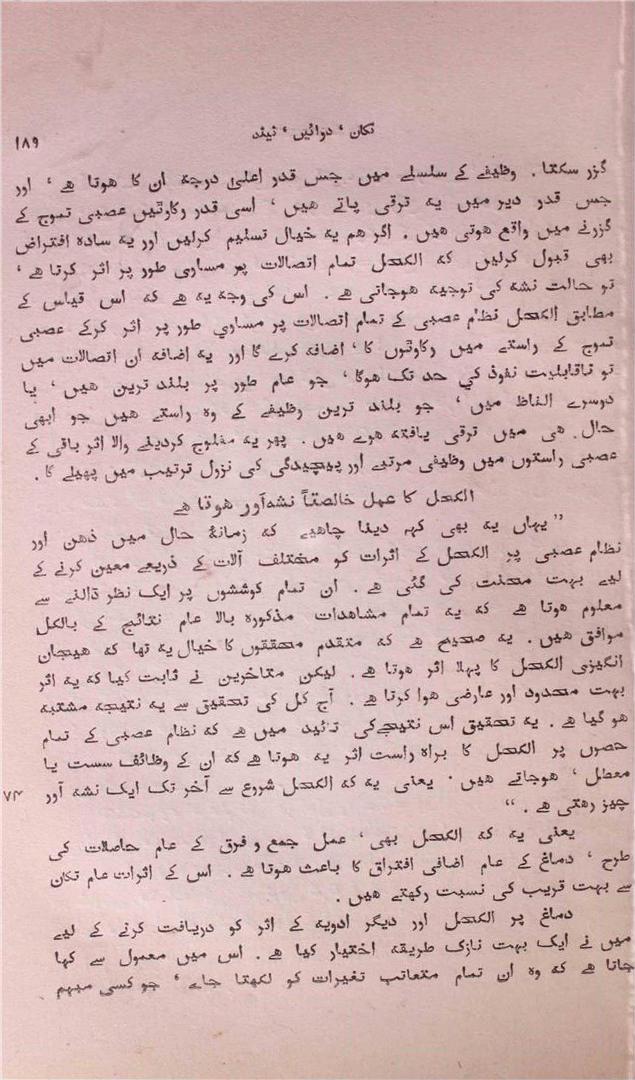 تکان ، دوائیں ، نیند
۱۸۹
گزر سکتا . وظیفے کے سلسلے میں جس قدر اعلیٰ درجہ ان کا ہوتا ہے ، اور
جس قدر دیر میں یہ ترقی پاتے ہیں ، اسی قدر رکاوٹیں عصبی تموج کے
گزرنے میں واقع ہوتی ہیں . اگر ہم یہ خیال تسلیم کرلیں اور یہ سادہ افتراض
بھی قبول کرلیں کہ الکحل تمام اتصالات پر مساوی طور پر اثر کرتا ہے ،
تو حالت نشہ کی توجیہ ہوجاتی ہے . اس کی وجہ یہ ہے کہ اس قیاس کے
مطابق الکحل نظام عصبی کے تمام اتصالات پر مساوی طور پر اثر کرکے عصبی
تموج کے راستے میں رکاوٹوں کا ، اضافہ کرے گا اور یہ اضافہ ان اتصالات میں
تو ناقابلیت نفوذ کی حد تک ہوگا ، جو عام طور پر بلند ترین ہیں ، یا
دوسرے الفاظ میں ، جو بلند ترین وظیفے کے وہ راستے ہیں جو ابھی
حال ہی میں ترقی یافتہ ہوے ہیں . پھر یہ مفلوج کردینے والا اثر باقی کے
عصبی راستوں میں وظیفی مرتبے اور پیچیدگی کی نزولی ترتیب میں پھیلے گا .
الکحل کا عمل خالصتاً نشہ آور ہوتا ہے
” یہاں یہ بھی کہہ دینا چاہیے کہ زمانۂ حال میں ذہن اور
نظام عصبی پر الکحل کے اثرات کو مختلف آلات کے ذریعے معین کرنے کے
لیے بہت محنت کی گئی ہے . ان تمام کوششوں پر ایک نظر ڈالنے سے
معلوم ہوتا ہے کہ یہ تمام مشاہدات مذکورہ بالا عام نتائج کے بالکل
موافق ہیں . یہ صحیح ہے کہ متقدم محققوں کا خیال یہ تھا کہ ہیجان
انگیزی الکحل کا پہلا اثر ہوتا ہے . لیکن متاخرین نے ثابت کیا کہ یہ اثر
بہت محدود اور عارضی ہوا کرتا ہے . آج کل کی تحقیق سے یہ نتیجہ مشتبہ
ہو گیا ہے . یہ تحقیق اس نتیجےکی تائید میں ہے کہ نظام عصبی کے تمام
حصوں پر الکحل کا براہ راست اثر یہ ہوتا ہے کہ ان کے وظائف سست یا
معطل ، ہوجاتے ہیں . یعنی یہ کہ الکحل شروع سے آخر تک ایک نشہ آور ۷۴
چیز رہتی ہے . “
یعنی یہ کہ الکحل بھی ، عمل جمع و فرق کے عام حاصلات کی
طرح ، دماغ کے عام اضافی افتراق کا باعث ہوتا ہے . اس کے اثرات عام تکان
سے بہت قریب کی نسبت رکھتے ہیں .
دماغ پر الکحل اور دیگر ادویہ کے اثر کو دریافت کرنے کے لیے
میں نے ایک بہت نازک طریقہ اختیار کیا ہے . اس میں معمول سے کہا
جاتا ہے کہ وہ ان تمام متعاقب تغیرات کو لکھتا جاے ، جو کسی مبہم